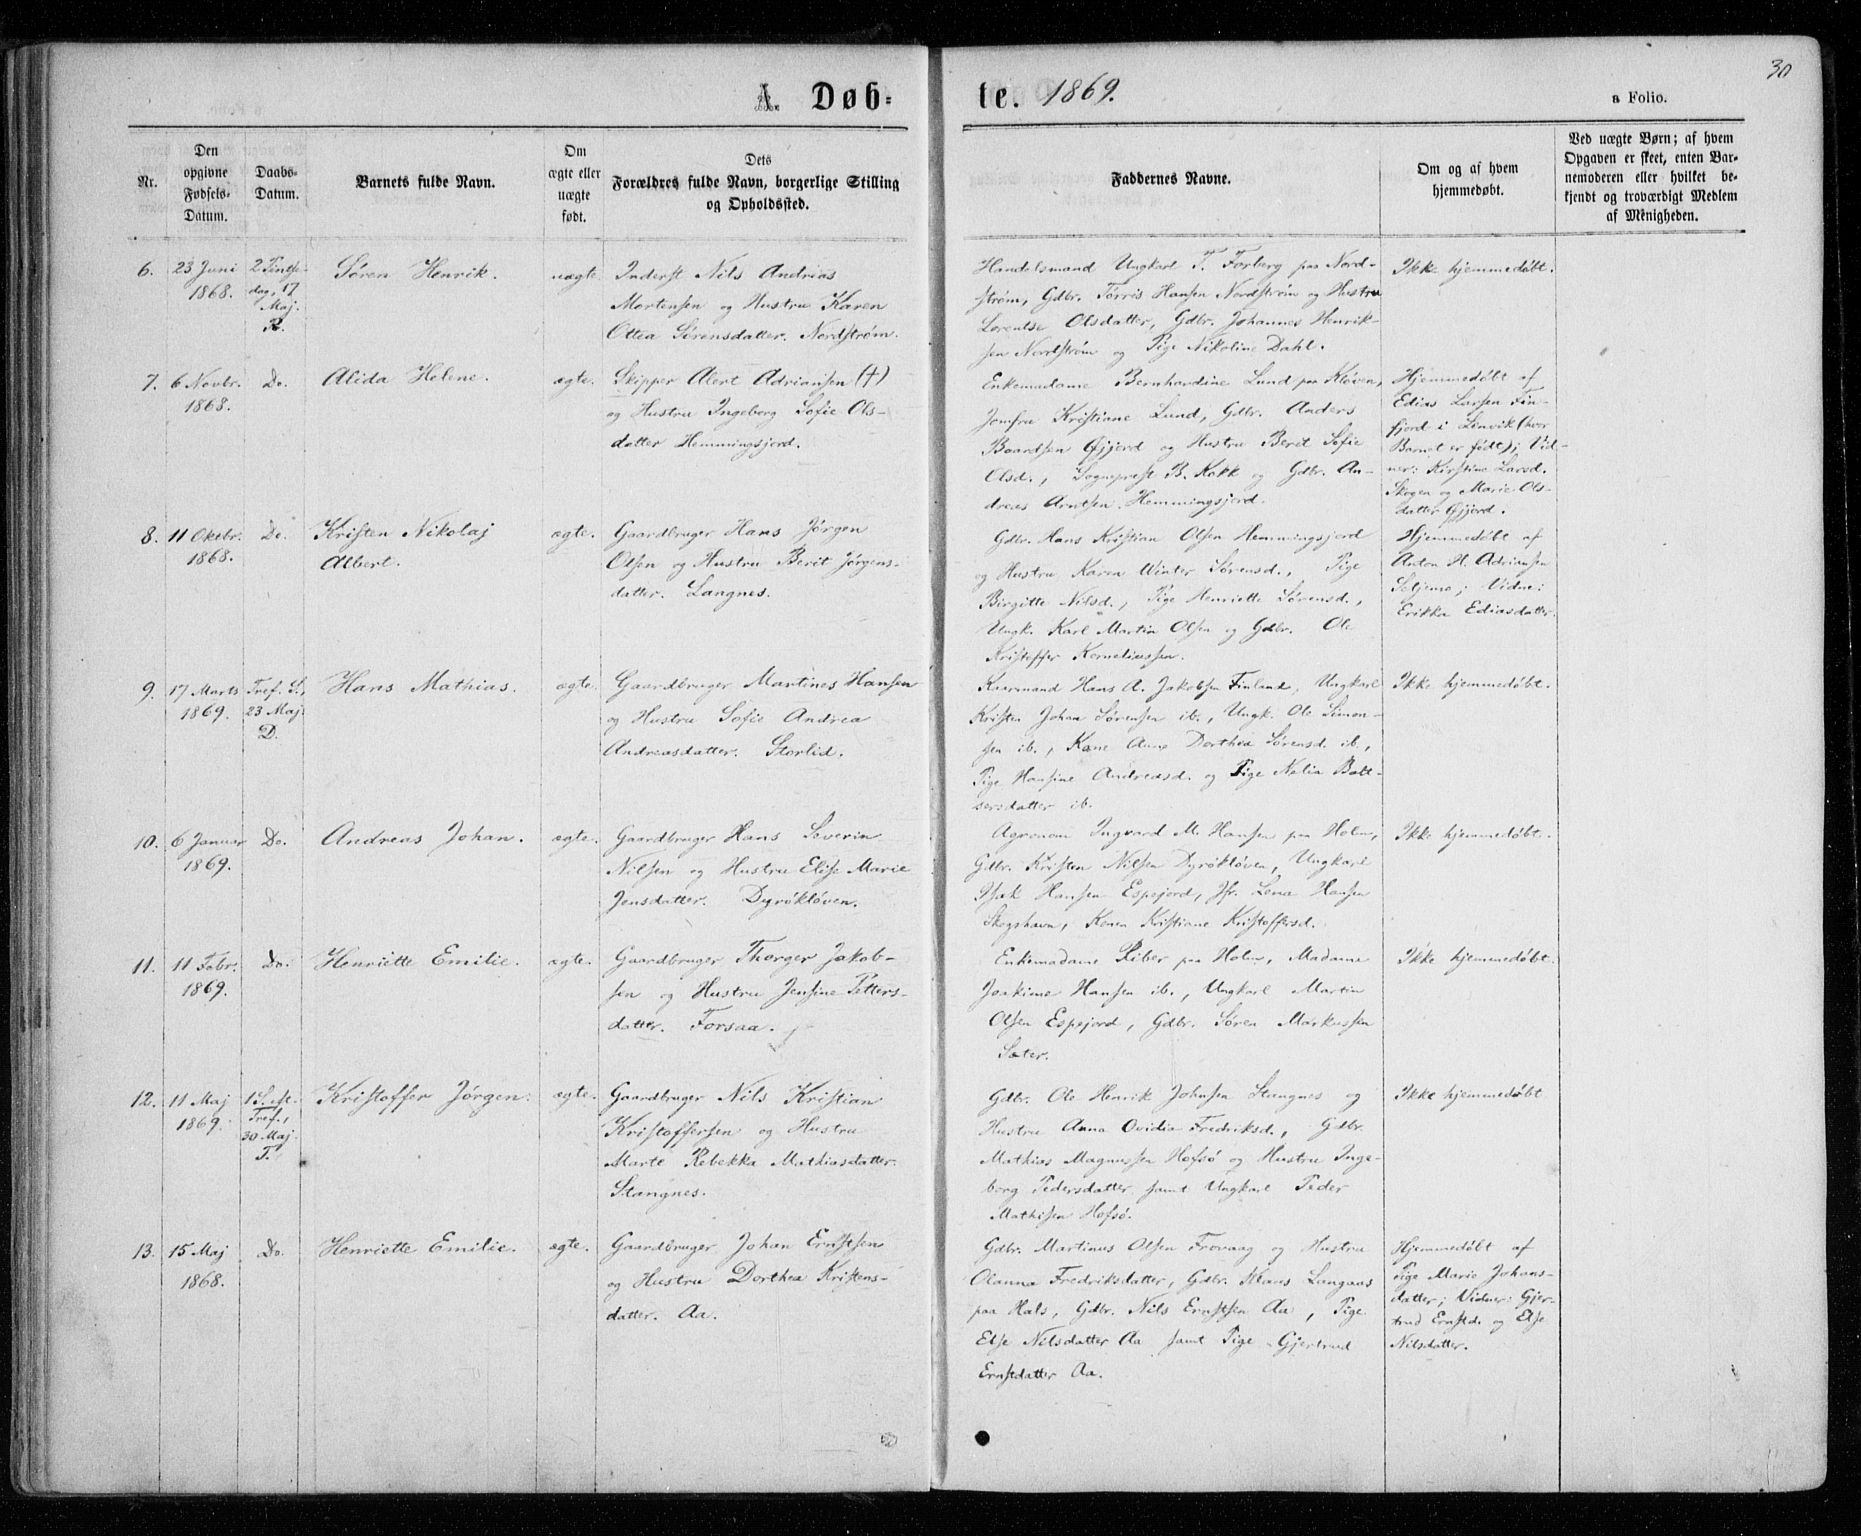 30
A. Døb=
te. 1869.
a Folio.
Nr.
Den
opgivne
Fødsels-
Datum.
Daabs-
Datum.
Barnets fulde Navn.
Om
ægte eller
uægte
født.
Dets
Forældres fulde Navn, borgerlige Stilling
og Opholdssted.
Faddernes Navne.
Om og af hvem
hjemmedøbt.
Ved uægte Børn; af hvem
Opgaven er skeet, enten Bar-
nemoderen eller hvilket be-
kjendt og troværdigt Medlem
af Menigheden.
6.
23 Juni
1868.
2 Pintse-
dag, 17
Maj.
Søren Henrik.
uægte.
Inderst Nils Andrias
Mortensen og Hustru Karen
Ottea Sørensdatter. Nordstrøm.
Handelsmand Ungkarl T. Forberg paa Nord-
strøm, Gdbr. Tørris Hansen Nordstrøm og Hustru
Lorentse Olsdatter, Gdbr. Johannes Henrik-
sen Nordstrøm og Pige Nikoline Dahl.
Ikke hjemmedøbt.
7.
6 Novbr.
1868.
Do.
Alida Helene.
ægte.
Skipper Alert Adriansen (†)
og Hustru Ingeborg Sofie Ols-
datter Hemmingsjord.
Enkemadame Bernhardine Lund paa Kløven,
Jomfru Kristiane Lund, Gdbr. Anders
Baardsen Gjjord og Hustru Berit Sofie
Olsd., Sogneprest B. Kokk og Gdbr. An-
dreas Arntsen Hemmingsjord.
Hjemmedøbt af
Edias Larsen Fin-
fjord i Lenvik (hvor
Barnet er født); Vid-
ner: Kirstine Larsd.
Skogen og Marie Ols-
datter Gjjord.
8.
11 Oktbr.
1868.
Do.
Kristen Nikolaj
Albert.
ægte.
Gaardbruger Hans Jørgen
Olsen og Hustru Berit Jørgens-
datter. Langnes.
Gdbr. Hans Kristian Olsen Hemmingsjord
og Hustru Karen Winter Sørensd., Pige
Birgitte Nilsd., Pige Henriette Sørensd.,
Ungk. Karl Martin Olsen og Gdbr. Ole
Kristoffer Korneliussen.
Hjemmedøbt af
Anton H. Adriansen
Seljemo; Vidne:
Erikka Ediasdatter.
9.
17 Marts
1869.
Tref. S.,
23 Maj.
D.
Hans Mathias.
ægte.
Gaardbruger Martines Hansen
og Hustru Sofie Andrea
Andreasdatter. Storlid.
Kaarmand Hans A. Jakobsen Finland, Ungkarl
Kristen Johan Sørensen ib., Ungk. Ole Simon-
sen ib., Kone Anne Dorthea Sørensd. ib.,
Pige Hansine Andreasd. og Pige Nelia Balt-
sersdatter ib.
Ikke hjemmedøbt.
10.
6 Januar
1869.
Do.
Andreas Johan.
ægte.
Gaardbruger Hans Severin
Nilsen og Hustru Elise Marie
Jensdatter. Dyrökløven.
Agronom Ingvard M. Hansen paa Holm,
Gdbr. Kristen Nilsen Dyrökløven, Ungkarl
Isak Hansen Espejord, Jfr. Lena Hansen
Skogshavn, Konen Kristiane Kristoffersd.
Ikke hjemmedøbt.
11.
11 Febr.
1869.
Do.
Henriette Emilie.
ægte.
Gaardbruger Thorger Jakob-
sen og Hustru Jensine Petters-
datter. Forsaa.
Enkemadame Riber paa Holm, Madame
Joakime Hansen ib., Ungkarl Martin
Olsen Espejord, Gdbr. Søren Markussen
Sæter.
Ikke hjemmedøbt.
12.
11 Maj
1869.
1 S. eft.
Tref.,
30 Maj.
T.
Kristoffer Jørgen.
ægte.
Gaardbruger Nils Kristian
Kristoffersen og Hustru
Marte Rebekka Mathiasdatter.
Stangnes.
Gdbr. Ole Henrik Johnsen Stangnes og
Hustru Anna Ovidia Fredriksd., Gdbr.
Mathias Magnussen Hofsø og Hustru Inge-
borg Pedersdatter samt Ungkarl Peder
Mathisen Hofsø.
Ikke hjemmedøbt
13.
15 Maj
1868.
Do.
Henriette Emilie.
ægte.
Gaardbruger Johan Ernstsen
og Hustru Dorthea Kristens-
datter. Aa.
Gdbr. Martinus Olsen Frovaag og Hustru
Olanna Fredriksdatter, Gdbr. Klaus Langaas
paa Hals, Gdbr. Nils Ernstsen Aa, Pige
Else Nilsdatter Aa samt Pige Gjertrud
Ernstdatter Aa.
Hjemmedøbt af
Pige Marie Johans-
datter; Vidner: Gjer-
trud Ernstd. og Else
Nilsdatter.